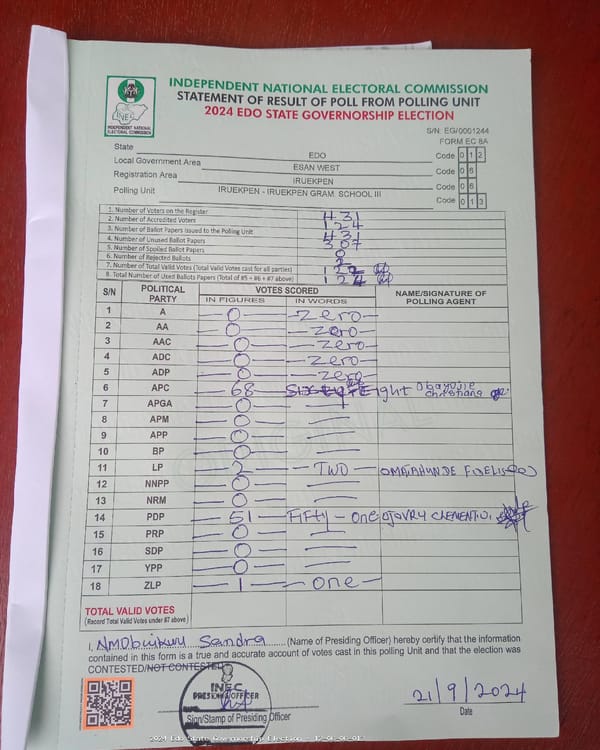 INDEPENDENT NATIONAL ELECTORAL COMMISSION
STATEMENT OF RESULT OF POLL FROM POLLING UNIT
2024 EDO STATE GOVERNORSHIP ELECTION
INEC
INDEPENDENT NATIONAL ELECTORAL COMMISSION
S/N: EG/0001244
FORM EC 8A
State EDO Code 0 1 2
Local Government Area ESAN WEST Code 0 6
Registration Area IRUEKPEN Code 0 6
Polling Unit IRUEKPEN - IRUEKPEN GRAM. SCHOOL III Code 0 1 3
1. Number of Voters on the Register 431
2. Number of Accredited Voters 124
3. Number of Ballot Papers Issued to the Polling Unit 431
4. Number of Unused Ballot Papers 307
5. Number of Spoiled Ballot Papers 0
6. Number of Rejected Ballots 2
7. Number of Total Valid Votes (Total Valid Votes cast for all parties) 122
8. Total Number of Used Ballots Papers (Total of #5 + #6 + #7 above) 124
S/N POLITICAL PARTY VOTES SCORED NAME/SIGNATURE OF POLLING AGENT
IN FIGURES IN WORDS
1 A 0 zero
2 AA 0 zero
3 AAC 0 zero
4 ADC 0 zero
5 ADP 0 zero
6 APC 68 Eight christiana
7 APGA 0
8 APM 0
9 APP 0
10 BP 0
11 LP 2 TWO FIDELIS
12 NNPP 0
13 NRM 0
14 PDP 51 FIFTY-one CLEMENT
15 PRP 0
16 SDP 0
17 YPP 0
18 ZLP 1 one
TOTAL VALID VOTES
(Record Total Valid Votes under #7 above)
I, Sandra (Name of Presiding Officer) hereby certify that the information
contained in this form is a true and accurate account of votes cast in this polling Unit and that the election was
CONTESTED/NOT CONTESTED
INEC
PRESIDING OFFICER
Sign/Stamp of Presiding Officer
21/9/2024
Date
2024 Edo State Governorship Election - 12-06-06-013